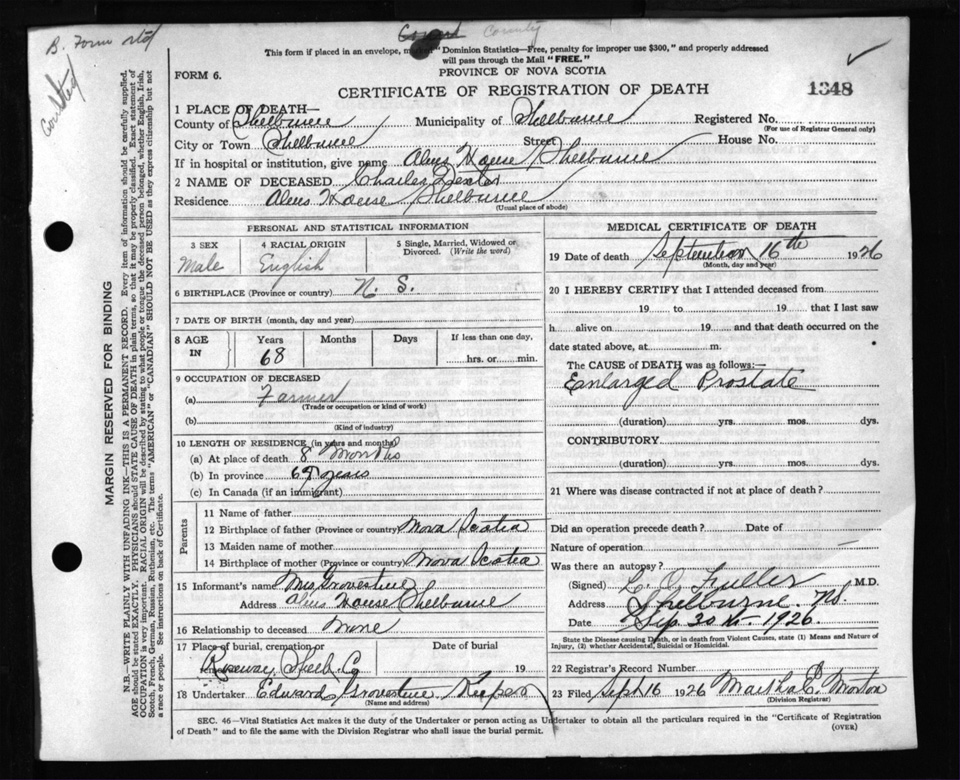 B. Form std
County
This form if placed in an envelope, "Dominion Statistics—Free, penalty for improper use $300," and properly addressed
will pass through the Mail "FREE."
FORM 6.
PROVINCE OF NOVA SCOTIA
CERTIFICATE OF REGISTRATION OF DEATH
1348
1 PLACE OF DEATH—
County of Shelburne Municipality of Shelburne Registered No.
(For use of Registrar General only)
City or Town Shelburne Street House No.
If in hospital or institution, give name Alms House Shelburne
2 NAME OF DECEASED Charles Dexter
Residence Alms House Shelburne
(Usual place of abode)
PERSONAL AND STATISTICAL INFORMATION
3 SEX 4 RACIAL ORIGIN 5 Single, Married, Widowed or Divorced. (Write the word)
Male English
6 BIRTHPLACE (Province or country) N. S.
7 DATE OF BIRTH (month, day and year)
8 AGE IN Years Months Days If less than one day,
68 hrs. or min.
9 OCCUPATION OF DECEASED
(a) Farmer
(Trade or occupation or kind of work)
(b)
(Kind of industry)
10 LENGTH OF RESIDENCE (in years and months)
(a) At place of death 8 Months
(b) In province 68 years
(c) In Canada (if an immigrant)
Parents
11 Name of father
12 Birthplace of father (Province or country) Nova Scotia
13 Maiden name of mother
14 Birthplace of mother (Province or country) Nova Scotia
15 Informant's name Mrs Grovestine
Address Alms House Shelburne
16 Relationship to deceased None
17 Place of burial, cremation or Date of burial
Roseway Shelb. Co 19
18 Undertaker Edward Grovestine Keeper
(Name and address)
MEDICAL CERTIFICATE OF DEATH
19 Date of death September 16th 1926
(Month, day and year)
20 I HEREBY CERTIFY that I attended deceased from
19 to 19 that I last saw
h alive on 19 and that death occurred on the
date stated above, at m.
The CAUSE OF DEATH was as follows:—
Enlarged Prostate
(duration) yrs. mos. dys.
CONTRIBUTORY
(duration) yrs. mos. dys.
21 Where was disease contracted if not at place of death?
Did an operation precede death? Date of
Nature of operation
Was there an autopsy?
(Signed) L. O. Fuller M.D.
Address Shelburne N.S.
Date Sep. 30th 1926.
State the Disease causing Death, or in death from Violent Causes, state (1) Means and Nature of
Injury, (2) whether Accidental, Suicidal or Homicidal.
22 Registrar's Record Number
23 Filed Sept 16 1926 Martha E. Morton
(Division Registrar)
SEC. 46—Vital Statistics Act makes it the duty of the Undertaker or person acting as Undertaker to obtain all the particulars required in the "Certificate of Registration
of Death" and to file the same with the Division Registrar who shall issue the burial permit.
(OVER)
MARGIN RESERVED FOR BINDING
N.B.—WRITE PLAINLY WITH UNFADING INK—THIS IS A PERMANENT RECORD. Every item of information should be carefully supplied.
AGE should be stated EXACTLY. PHYSICIANS should STATE CAUSE OF DEATH in plain terms, so that it may be properly classified. Exact statement of
OCCUPATION is very important. RACIAL ORIGIN will be described by stating to what people or tongue the deceased person belonged, whether English, Irish,
Scotch, French, German, Russian, Ruthenian, etc. The terms "AMERICAN" or "CANADIAN" SHOULD NOT BE USED as they express citizenship but not
a race or people. See instructions on back of Certificate.